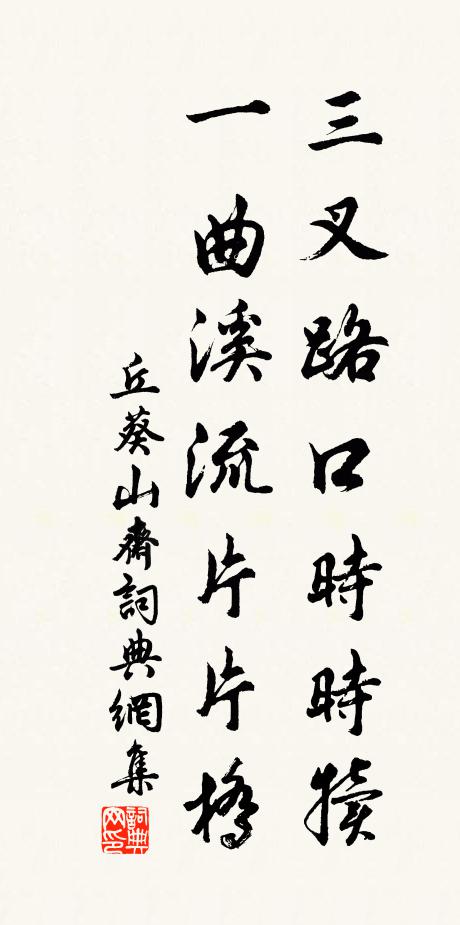 三叉路口時時犢
一曲溪流片片橋
丘葵山齋詞典網集
詞典网印